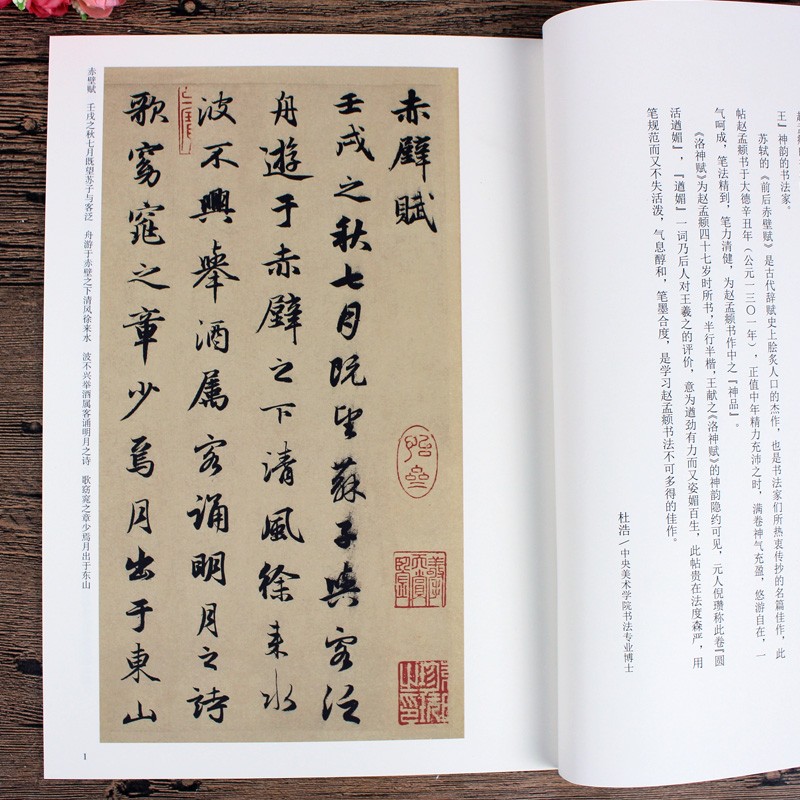 王』神韵的书法家。
苏轼的《前后赤壁赋》是古代辞赋史上脍炙人口的杰作，也是书法家们所热衷传抄的名篇佳作，此
帖赵孟頫书于大德辛丑年（公元一三〇一年），正值中年精力充沛之时，满卷神气充盈，悠游自在，一
气呵成，笔法精到，笔力清健，为赵孟頫书作中之『神品』。
《洛神赋》为赵孟頫四十七岁时所书，半行半楷，王献之《洛神赋》的神韵隐约可见，元人倪瓒称此卷『圆
活遒媚』，『遒媚』一词乃后人对王羲之的评价，意为遒劲有力而又姿媚百生，此帖贵在法度森严，用
笔规范而又不失活泼，气息醇和，笔墨合度，是学习赵孟頫书法不可多得的佳作。
杜浩／中央美术学院书法专业博士
赤壁賦
壬戌之秋七月既望蘇子與客泛
舟遊于赤壁之下清風徐来水
波不興舉酒属客誦明月之詩
歌窈窕之章少焉月出于東山
赤壁赋 壬戌之秋七月既望苏子与客泛 舟游于赤壁之下清风徐来水 波不兴举酒属客诵明月之诗 歌窈窕之章少焉月出于东山
1